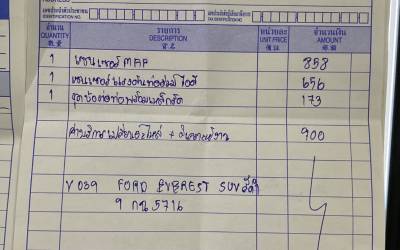 ADDRESS
เลขประจำตัวประชาชน
IDENTIFICATION NO.
เลขประจำตัวผู้เสียภาษี
TAXPAYER IDENTIFICATION NO.
จำนวน รายการ หน่วยละ จำนวนเงิน
QUANTITY DESCRIPTION UNIT PRICE AMOUNT
1 เซนเซอร์ MAP 858
1 เซนเซอร์แรงดันท่อร่วมไอดี 656
1 ชุดข้อต่อท่อพร้อมเหล็กรัด 173
ค่าบริการเปลี่ยนอะไหล่ + 900
V 039 FORD EVEREST SUV สีดำ
9 กฉ 5716